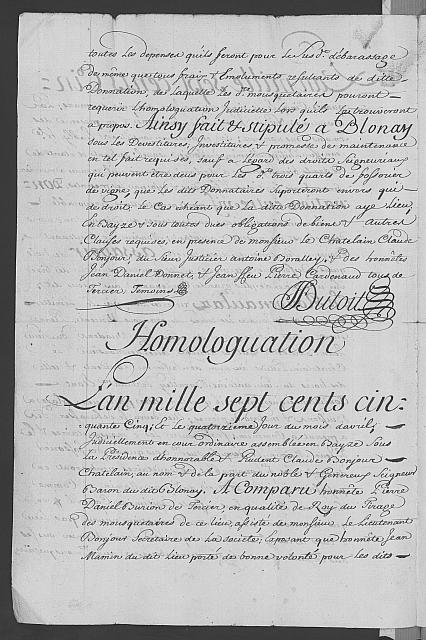 toutes les depenses qu'ils seront pour le sus d.t débarassage
de mêmes que tous frais & Emoluments resultants de ditte
Donnation, de laquelle les d.ts mousquetaires pouront
requerir l'homologuation Judicielle lors qu'ils le trouveront
a propos. Ainsy fait & stipulé a Blonay
sous les Devestitures, Investitures & promesses de maintenance
en tel fait requises, sauf a l'égard des droits seigneuriaux
qui peuvent être deus pour les d.ts trois quarts de fossorier
de vigne que les dits Donnataires suporteront envers qui
de droit le Cas échéant que la ditte Donnation aye lieu,
En Bayze & sous toutes dues obligations de biens & autres
Clauses requises, en presence de monsieur le Chatelain Claude
Bonjour, du Sieur Justicier antoine Boralley, & des honnêtes
Jean Daniel Donnet, & Jean Pierre Cardenaud tous de
Tercier Temoins
Dutoit
Homologuation
L'an mille sept cents cin=
quante Cinq, & le quatorzième Jour du mois d'avril,
Judiciellement en cour ordinaire assemblée en Bayze sous
la Présidence d'honnorable & Prudent Claude Bonjour
Chatelain, au nom & de la part du noble & Genereux Seigneur
Baron du dit Blonay. A Comparu honnête Pierre
Daniel Burion de Tercier en qualité de Roy du Tirage
des mousquetaires de ce lieu, assisté de monsieur le Lieutenant
Bonjour Secretaire de la société, exposant que honnête Jean
Mamin du dit lieu porté de bonne volonté pour les dits